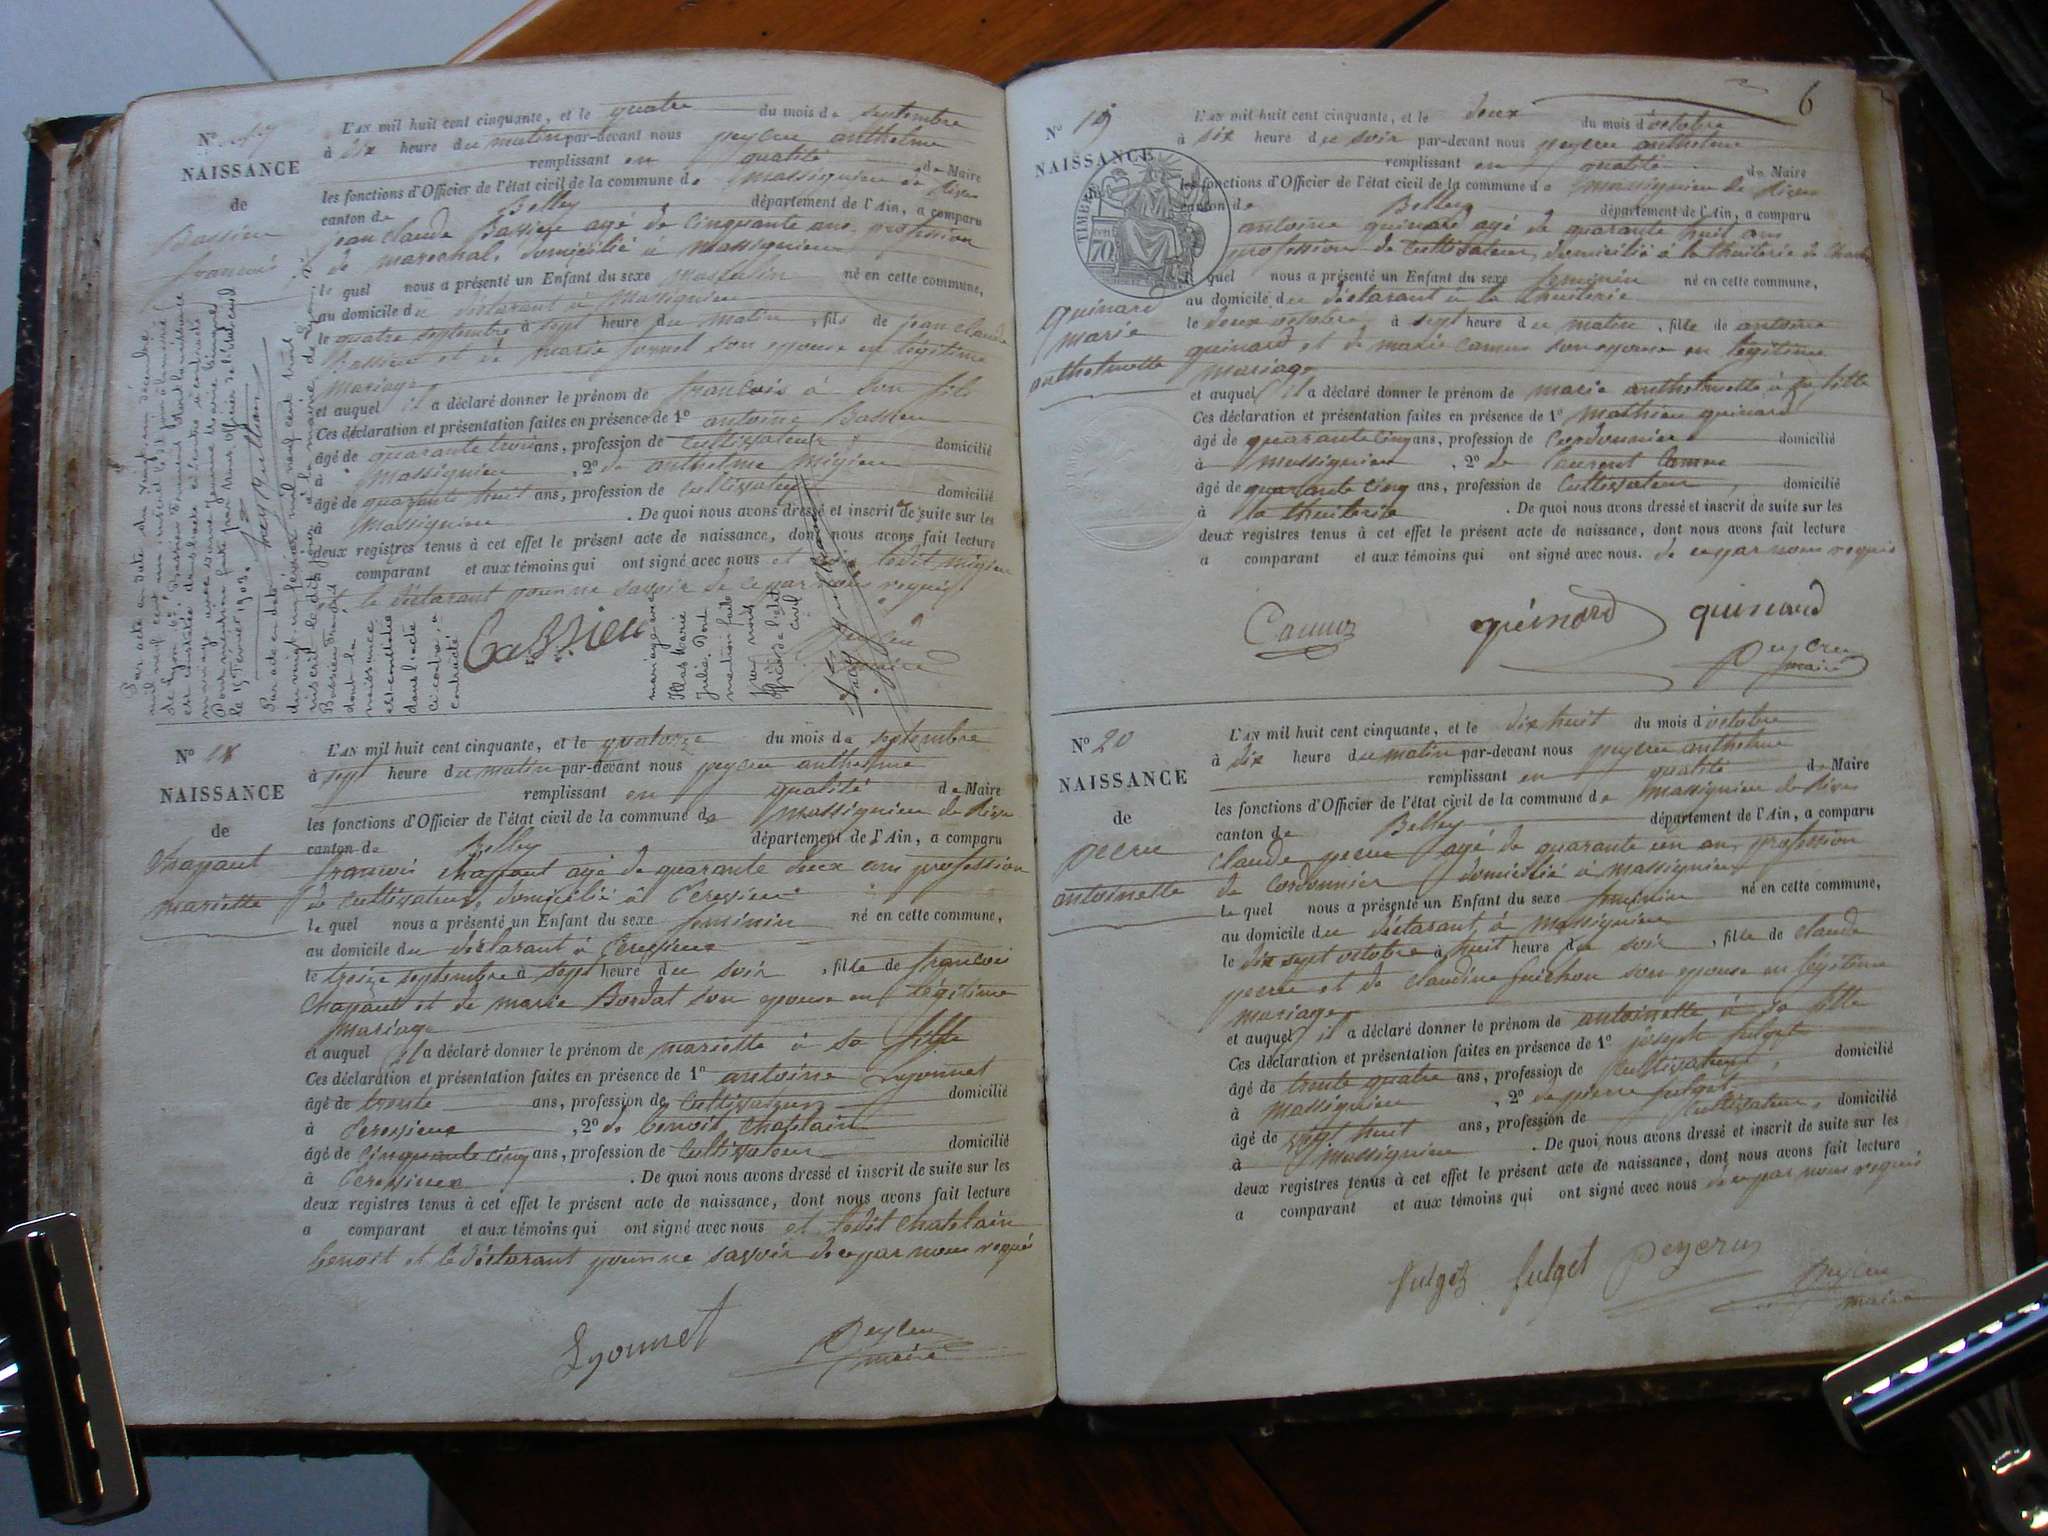 N° 17
NAISSANCE
de
Bassieu
françois
L'AN mil huit cent cinquante, et le quatre du mois de septembre
à dix heure du matin par-devant nous peycru anthelme
remplissant en qualité de Maire
les fonctions d'Officier de l'état civil de la commune de massignieu de Rives
canton de Belley département de l'Ain, a comparu
jean claude Bassieu agé de cinquante ans profession
de marechal, domicilié à massignieu
le quel nous a présenté un Enfant du sexe masculin né en cette commune,
au domicile du déclarant à massignieu
le quatre septembre à sept heure du matin, fils de jean claude
Bassieu et de marie son epouse en légitime
mariage
et auquel il a déclaré donner le prénom de françois à son fils
Ces déclaration et présentation faites en présence de 1° antoine Bassieu
âgé de quarante trois ans, profession de cultivateur, domicilié
à massignieu, 2° de anthelme migieu
âgé de quarante huit ans, profession de cultivateur domicilié
à massignieu. De quoi nous avons dressé et inscrit de suite sur les
deux registres tenus à cet effet le présent acte de naissance, dont nous avons fait lecture
comparant et aux témoins qui ont signé avec nous et ledit migieu
et le déclarant pour ne savoir de ce par nous requis
Bassieu
peycru
maire
Par acte en date du vingt un décembre
de Lyon
mariage avec
Dont mention faite par nous, Officier de l'état civil
le 15 1903.
Par acte en date
du vingt un février mil neuf cent trois
inscrit le dit jour à la mairie de Lyon
Bassieu François
dont la
naissance
est constatée
dans l'acte
ci contre, a
contracté
mariage avec
Marie
Julie. Dont
mention faite
par nous
Officier de l'état
civil
N° 18
NAISSANCE
de
Chapaut
mariette
L'AN mil huit cent cinquante, et le quatorze du mois de septembre
à sept heure du matin par-devant nous peycru anthelme
remplissant en qualité de Maire
les fonctions d'Officier de l'état civil de la commune de massignieu de Rives
canton de Belley département de l'Ain, a comparu
francois chapaut agé de quarante deux ans profession
de cultivateur, domicilié à Cressieu
le quel nous a présenté un Enfant du sexe feminin né en cette commune,
au domicile du déclarant à Cressieu
le treize septembre à sept heure du soir, fille de francois
Chapaut et de marie Bordat son epouse en légitime
mariage
et auquel il a déclaré donner le prénom de mariette à sa fille
Ces déclaration et présentation faites en présence de 1° antoine Lyonnet
âgé de trente ans, profession de cultivateur domicilié
à Cressieu, 2° de benoit chatelain
âgé de cinquante cinq ans, profession de cultivateur domicilié
à Cressieu. De quoi nous avons dressé et inscrit de suite sur les
deux registres tenus à cet effet le présent acte de naissance, dont nous avons fait lecture
a comparant et aux témoins qui ont signé avec nous et ledit chatelain
benoit et le déclarant pour ne savoir de ce par nous requis
Lyonnet
peycru
maire
6
N° 19
NAISSANCE
TIMBRE
70
quinard
marie
anthelmette
L'AN mil huit cent cinquante, et le deux du mois d'octobre
à six heure du soir par-devant nous peycru anthelme
remplissant en qualité de Maire
les fonctions d'Officier de l'état civil de la commune de massignieu de Rives
canton de Belley département de l'Ain, a comparu
antoine quinard agé de quarante huit ans
profession de cultivateur, domicilié à la
le quel nous a présenté un Enfant du sexe feminin né en cette commune,
au domicile du déclarant à la
le deux octobre à sept heure du matin, fille de antoine
quinard et de marie camus son epouse en légitime
mariage
et auquel il a déclaré donner le prénom de marie anthelmette à sa fille
Ces déclaration et présentation faites en présence de 1° mathieu quinard
âgé de quarante cinq ans, profession de cordonnier domicilié
à massignieu, 2° de laurent camus
âgé de quarante cinq ans, profession de cultivateur, domicilié
à la. De quoi nous avons dressé et inscrit de suite sur les
deux registres tenus à cet effet le présent acte de naissance, dont nous avons fait lecture
a comparant et aux témoins qui ont signé avec nous. de ce par nous requis
Camus quinard quinard
peycru
maire
N° 20
NAISSANCE
de
pecru
antoinette
L'AN mil huit cent cinquante, et le dix huit du mois d'octobre
à dix heure du matin par-devant nous peycru anthelme
remplissant en qualité de Maire
les fonctions d'Officier de l'état civil de la commune de massignieu de Rives
canton de Belley département de l'Ain, a comparu
claude pecru agé de quarante un ans profession
de cordonnier domicilié à massignieu
le quel nous a présenté un Enfant du sexe feminin né en cette commune,
au domicile du déclarant à massignieu
le dix sept octobre à huit heure du soir, fille de claude
pecru et de claudine guichon son epouse en légitime
mariage
et auquel il a déclaré donner le prénom de antoinette à sa fille
Ces déclaration et présentation faites en présence de 1° joseph fulget
âgé de trente quatre ans, profession de cultivateur, domicilié
à massignieu, 2° de pierre fulget
âgé de vingt huit ans, profession de cultivateur, domicilié
à massignieu. De quoi nous avons dressé et inscrit de suite sur les
deux registres tenus à cet effet le présent acte de naissance, dont nous avons fait lecture
a comparant et aux témoins qui ont signé avec nous de ce par nous requis
fulget fulget peycru
peycru
maire